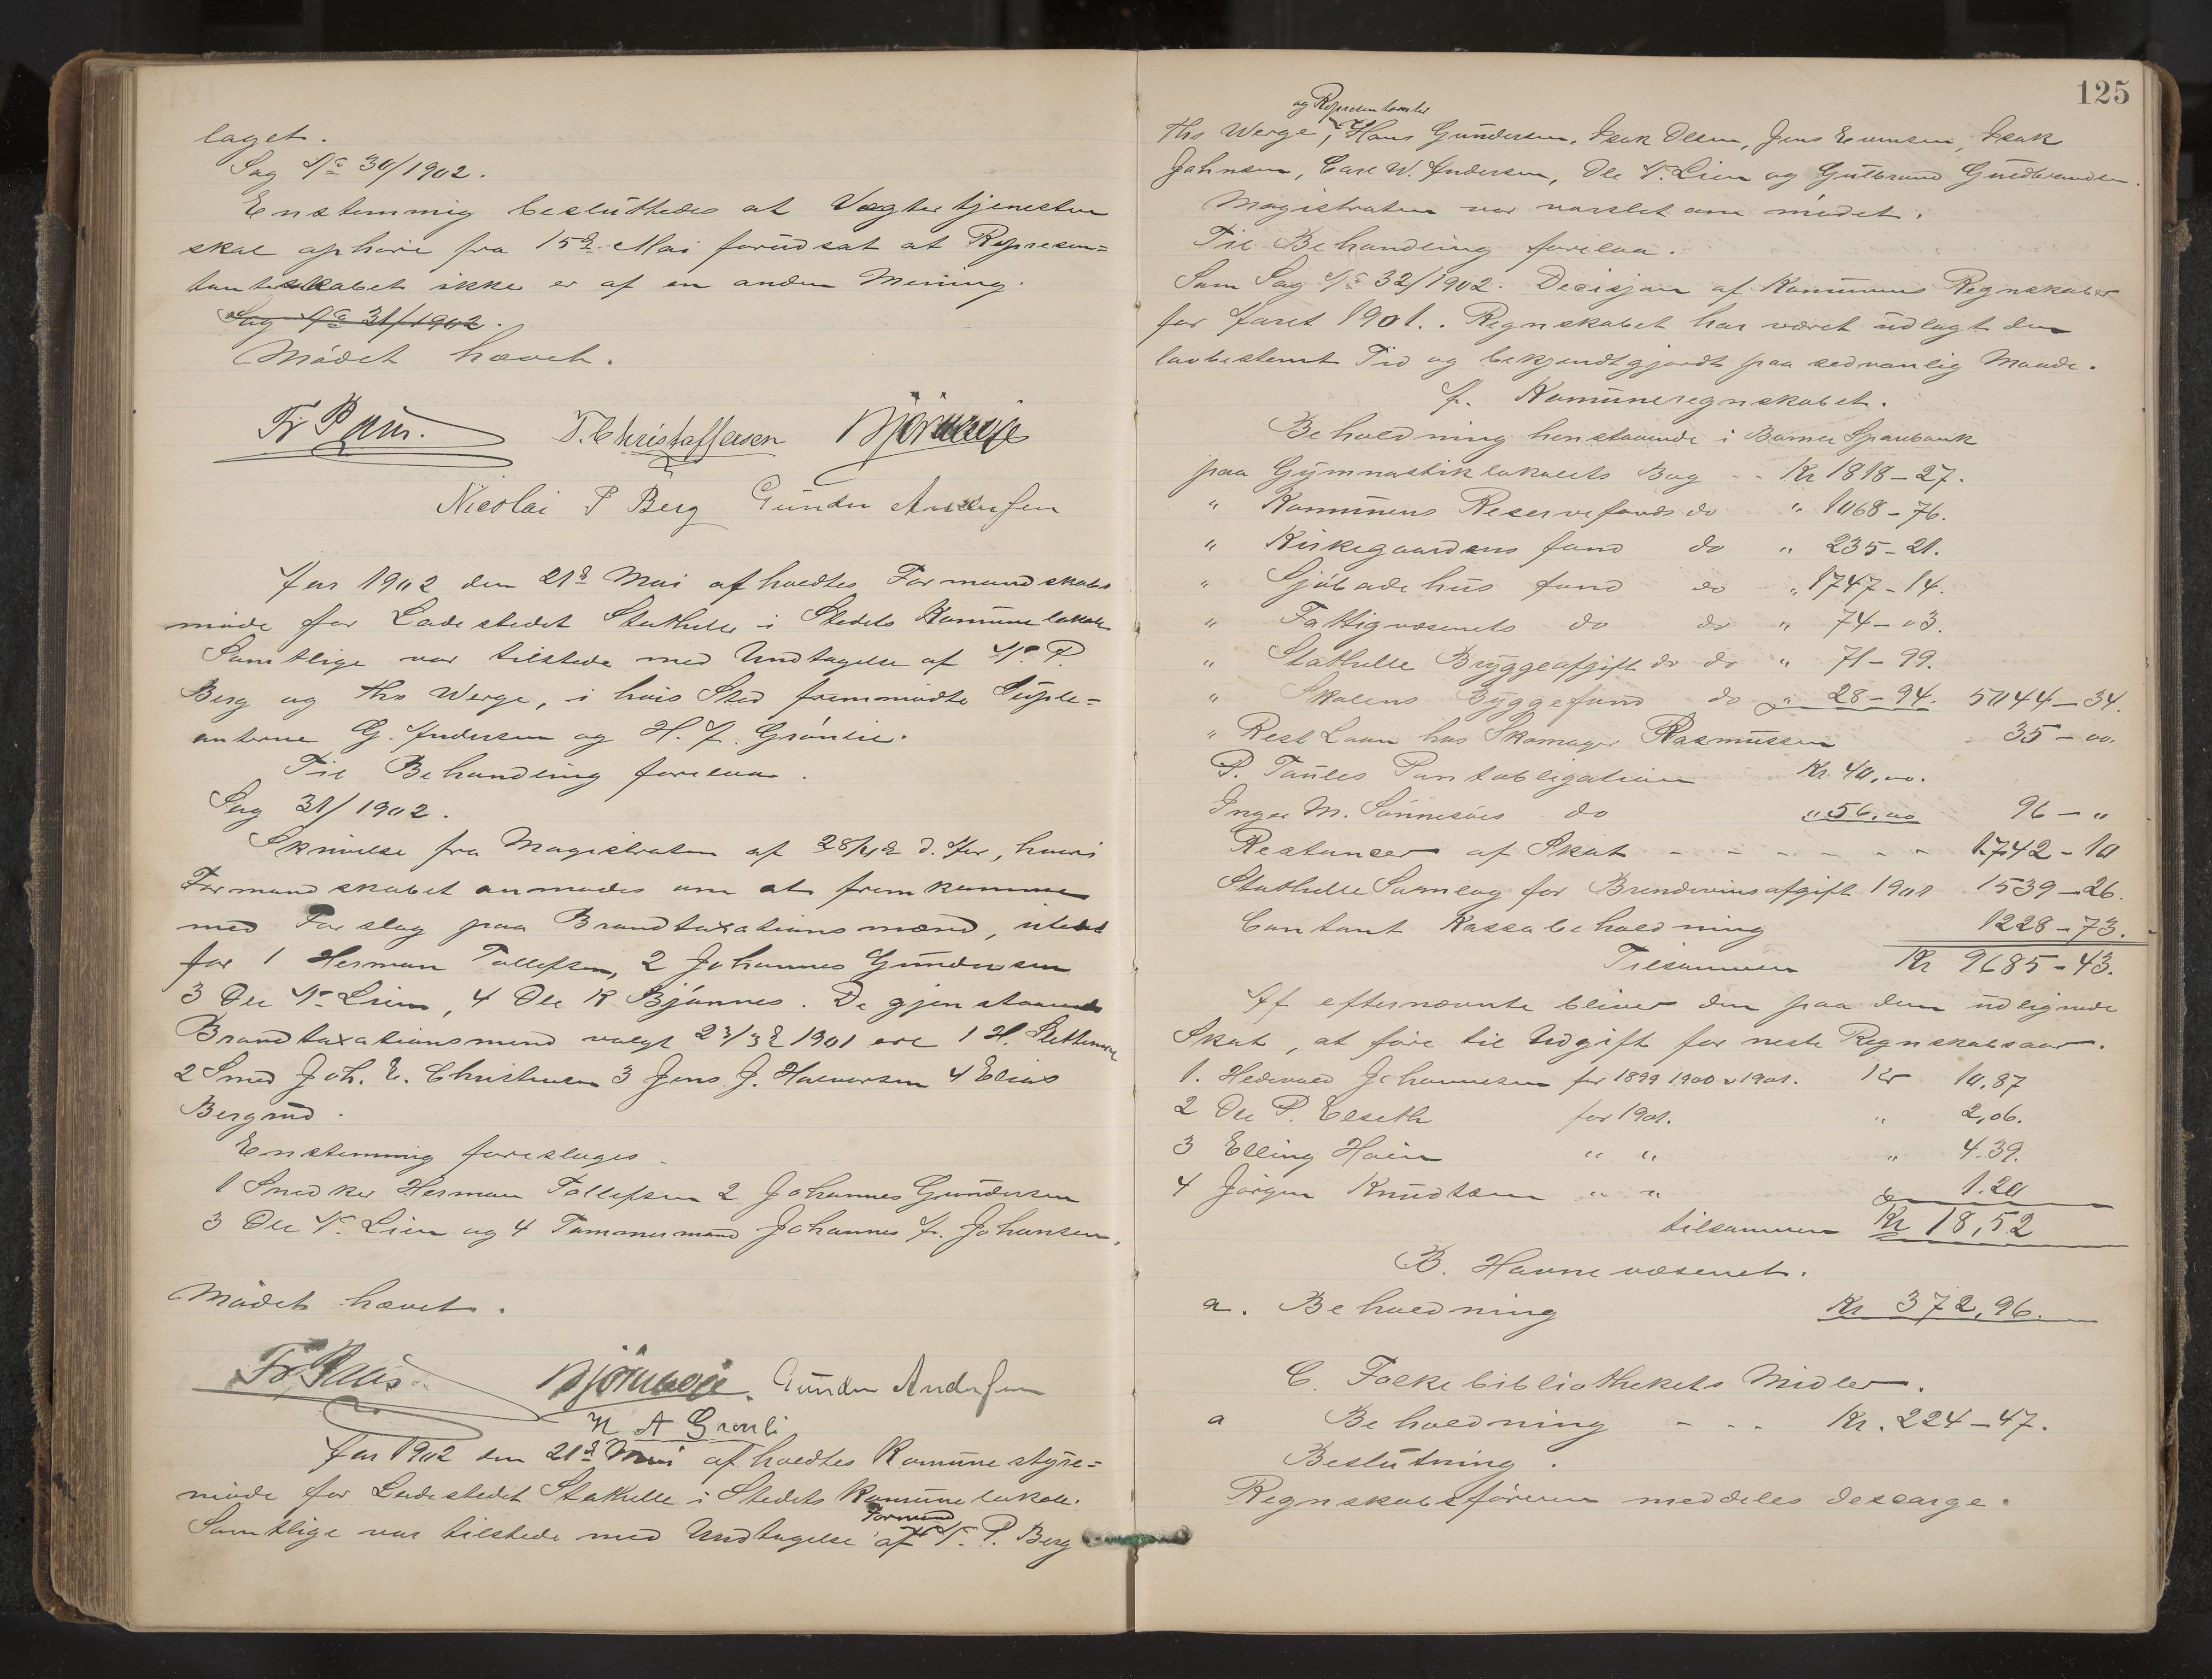 laget.
Sag No 30/1902.
Enstemmig besluttedes at Vægtertjenesten
skal ophøre fra 15de Mai forudsat at Represen=
tantskabet ikke er af en anden Mening.
Sag No 31/1902.
Mødet hævet.
Fr. T. Christoffersen
Nicolai P Berg Gunder Andersen
Aar 1902 den 21de Mai afholdtes Formandskabs
møde for Ladestedet Stathelle i Stedets Kommunelokale
Samtlige var tilstede med Undtagelse af N. P.
Berg og Ths Werge, i hvis Sted fremmødte Suple=
anterne G. Andersen og H. A. Grønlie.
Til Behandling forelaa.
Sag 31/1902.
Skrivelse fra Magistraten af 28/4 d. Aar, hvori
Formandskabet anmodes om at fremkomme
med Forslag paa Brandtaxationsmænd, istedet
for 1 Herman Tollefsen, 2 Johannes Gundersen
3 Ole N. Lien, 4 Ole K Bjønnes. De gjenstaaende
Brandtaxationsmend valgt 23/3 1901 ere 1 H.
2 Smed Joh. E. Christensen 3 Jens J. Halvorsen 4 Elias
Bergrud.
Enstemmig foresloges.
1 Snedker Herman Tollefsen 2 Johannes Gundersen
3 Ole N. Lien og 4 Tømmermand Johannes A. Johansen.
Mødet hævet.
Fr. Gunder Andersen
H A Grønli
Aar 1902 den 21de Mai afholdtes Komunestyre=
møde for Ladestedet Stathelle i Stedets Komunelokale.
Samtlige var tilstede med Undtagelse af Formand N. P. Berg
125
og Representanter
Ths Werge, Hans Gundersen, Isak Olsen, Jens Evensen, Isak
Johnsen, Carl W. Andersen, Ole N. Lien og Gulbrand Guldbrandsen.
Magistraten var varslet om mødet.
Til Behandling forelaa.
Som Sag No 32/1902. Decisjon af Komunens Regnskaber
for Aaret 1901. Regnskabet har været udlagt den
lovbestemt Tid og bekjendtgjordt paa sedvanlig Maade.
A. Komuneregnskabet.
Beholdning henstaaende i Bamle Sparebank
paa Gymnastiklokalets Bog - - Kr 1818-27.
" Komunens Reservefonds do " 1068-76.
" Kirkegaardens fond do " 235-21.
" Sjøbadehus fond do " 1747-14.
" Fattigvæsenets do do " 74-03.
" Stathelle Bryggeafgift do do " 71-99.
" Skolens Byggefond do " 28-94. 5044-34.
" Rest Laan hos Skomager Rasmussen 35-00.
P. Taules Pantobligation Kr. 40,00.
Inger M. do " 56,00 96-"
Restancer af Skat - - - - - - - 1742-10
Stathelle Samlag for Brændevinsafgift 1901 1539-26.
Contant Kassabeholdning 1228-73.
Tilsammen Kr 9685-43.
Af efternævnte bliver den paa dem udlignede
Skat, at føre til Udgift for neste Regnskabsaar.
1. Hedevald Johannesen for 1899 1900 & 1901. Kr 10.87
2 Ole P. Elseth for 1901. " 2,06.
3 Elling " " " 4.39.
4 Jørgen Knudtsen " " " 1.20
tilsammen Kr 18,52
B. Havnevæsenet.
a. Beholdning Kr 372,96.
C. Folkebibliothekets Midler.
a Beholdning - - - Kr. 224-47.
Beslutning.
Regnskabsføreren meddeles descarge.